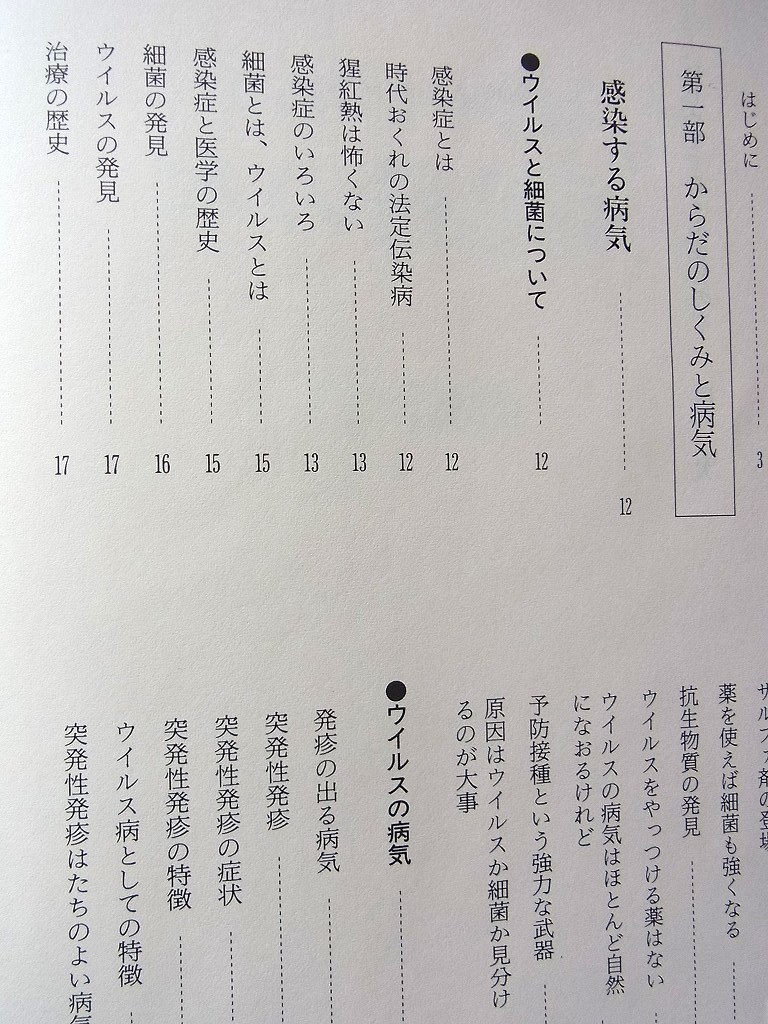 はじめに 3
第一部 からだのしくみと病気
感染する病気 12
●ウイルスと細菌について 12
感染症とは 12
時代おくれの法定伝染病 12
猩紅熱は怖くない 13
感染症のいろいろ 13
細菌とは、ウイルスとは 15
感染症と医学の歴史 15
細菌の発見 16
ウイルスの発見 17
治療の歴史 17
サルファ剤の登場
薬を使えば細菌も強くなる
抗生物質の発見
ウイルスをやっつける薬はない
ウイルスの病気はほとんど自然
になおるけれど
予防接種という強力な武器
原因はウイルスか細菌か見分け
るのが大事
●ウイルスの病気
発疹の出る病気
突発性発疹
突発性発疹の症状
突発性発疹の特徴
ウイルス病としての特徴
突発性発疹はたちのよい病気